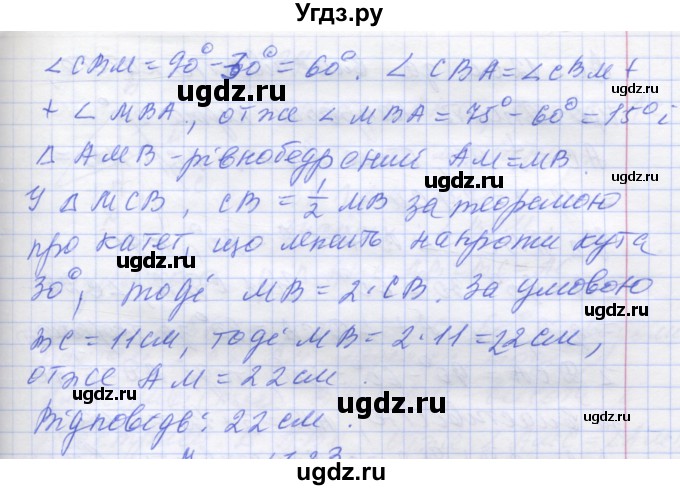 Угдз.ру
∠CBM = 90° - 30° = 60°. ∠CBA = ∠CBM +
+ ∠MBA, отже ∠MBA = 75° - 60° = 15° і
ugdz.ru ugdz.ru
Δ AMB - рівнобедрений AM = MB.
ugdz.ru
У Δ MCB, CB = 1/2 MB за теоремою
про катет, що лежить напроти кута
ugdz.ru ugdz.ru
30°, тоді MB = 2·CB. За умовою
ugdz.ru
BC = 11 см, тоді MB = 2·11 = 22 см,
отже AM = 22 см.
ugdz.ru ugdz.ru
Відповідь: 22 см.
ugdz.ru